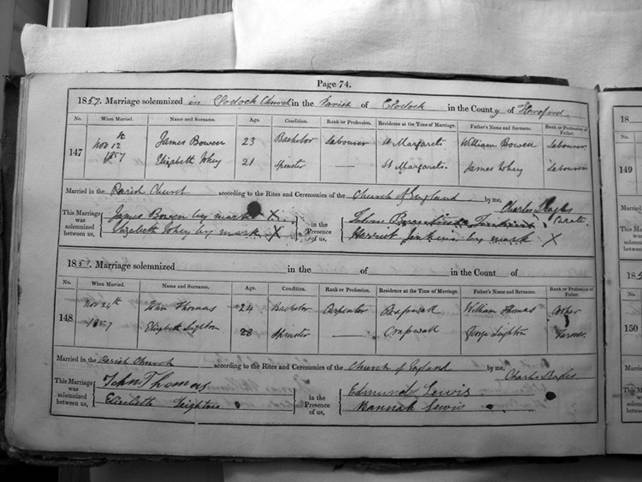 Page 74.
1857. Marriage solemnized in Clodock Church in the Parish of Clodock in the County of Hereford
No. When Married. Name and Surname. Age. Condition. Rank or Profession. Residence at the Time of Marriage. Father's Name and Surname. Rank or Profession of Father.
147 Nov 12th 1857 James Bowen 23 Bachelor Labourer St Margarets William Bowen Labourer
Elizabeth 21 Spinster — St Margarets James Labourer
Married in the Parish Church according to the Rites and Ceremonies of the Church of England by me, Charles
This Marriage was solemnized between us, James Bowen by mark X
Elizabeth by mark X
in the Presence of us,
Harriet Jenkins by mark X
185 . Marriage solemnized in the of in the Count of
No. When Married. Name and Surname. Age. Condition. Rank or Profession. Residence at the Time of Marriage. Father's Name and Surname. Rank or Profession of Father.
148 Nov 1857 John Thomas 24 Bachelor Carpenter William Thomas
Elizabeth Leighton Spinster — George Leighton Farmer
Married in the Parish Church according to the Rites and Ceremonies of the Church of England by me, Charles
This Marriage was solemnized between us, John Thomas
Elizabeth Leighton
in the Presence of us, Edmund Lewis
Hannah Lewis
149
150